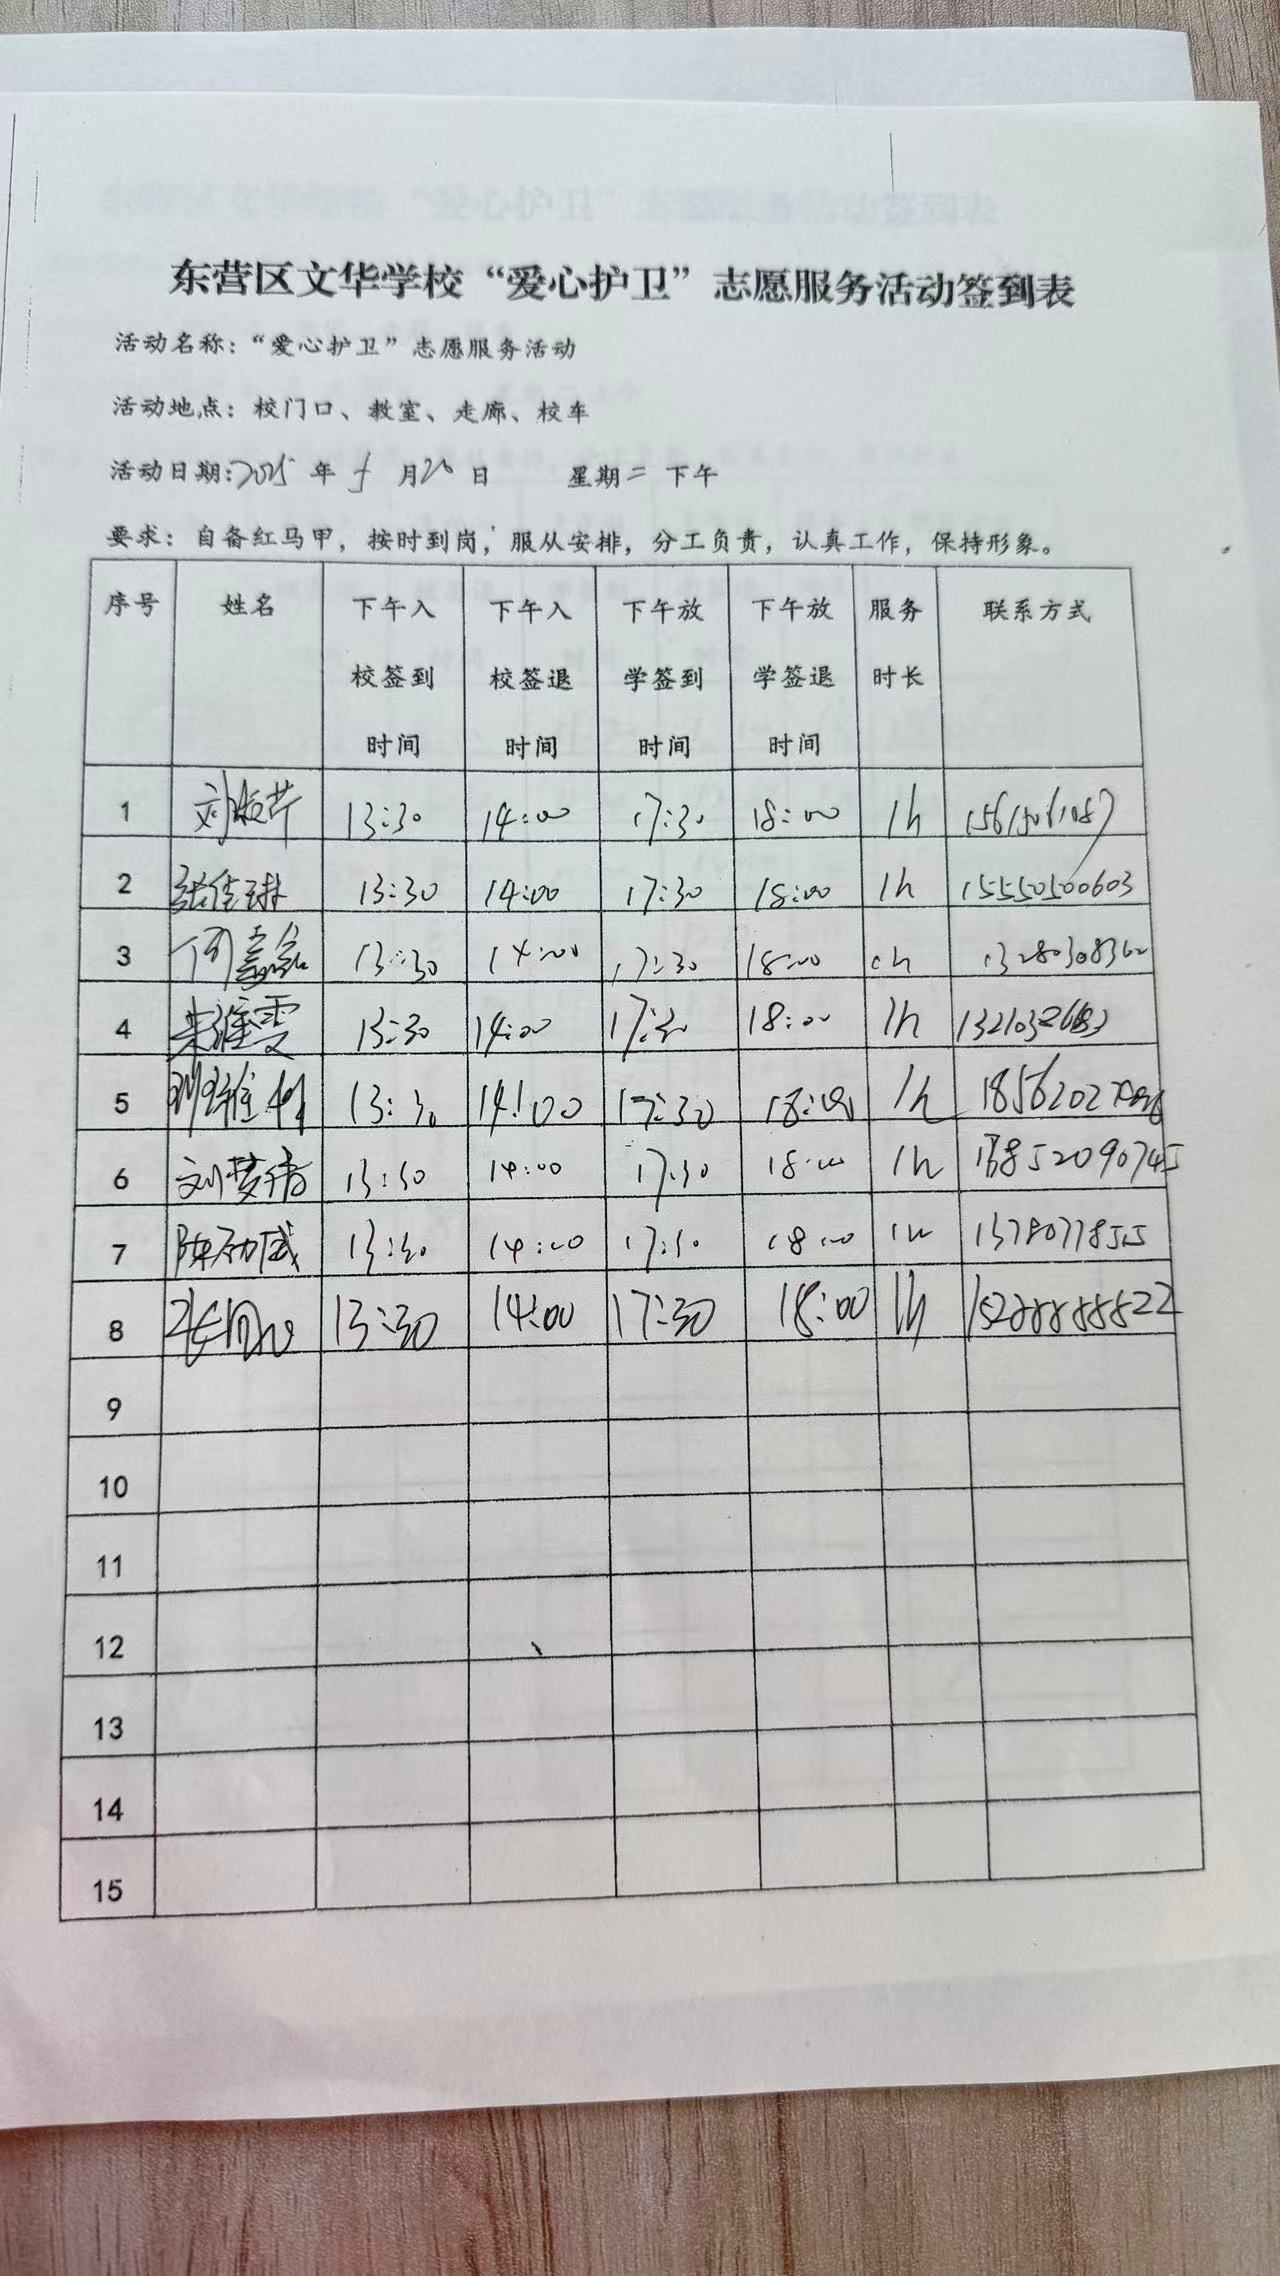 东营区文华学校“爱心护卫”志愿服务活动签到表
活动名称：“爱心护卫”志愿服务活动
活动地点：校门口、教室、走廊、校车
活动日期：2025年5月20日 星期二 下午
要求：自备红马甲，按时到岗，服从安排，分工负责，认真工作，保持形象。
序号 姓名 下午入校签到时间 下午入校签退时间 下午放学签到时间 下午放学签退时间 服务时长 联系方式
1 13:30 14:00 17:30 18:00 1h
2 张佳琳 13:30 14:00 17:30 18:00 1h 15550500603
3 13:30 14:00 17:30 18:00 1h 13280308360
4 朱维雯 13:30 14:00 17:30 18:00 1h
5 13:30 14:00 17:30 18:00 1h
6 刘梦倩 13:30 14:00 17:30 18:00 1h
7 13:30 14:00 17:30 18:00 1h 13780778555
8 13:30 14:00 17:30 18:00 1h 15288888822
9
10
11
12
13
14
15